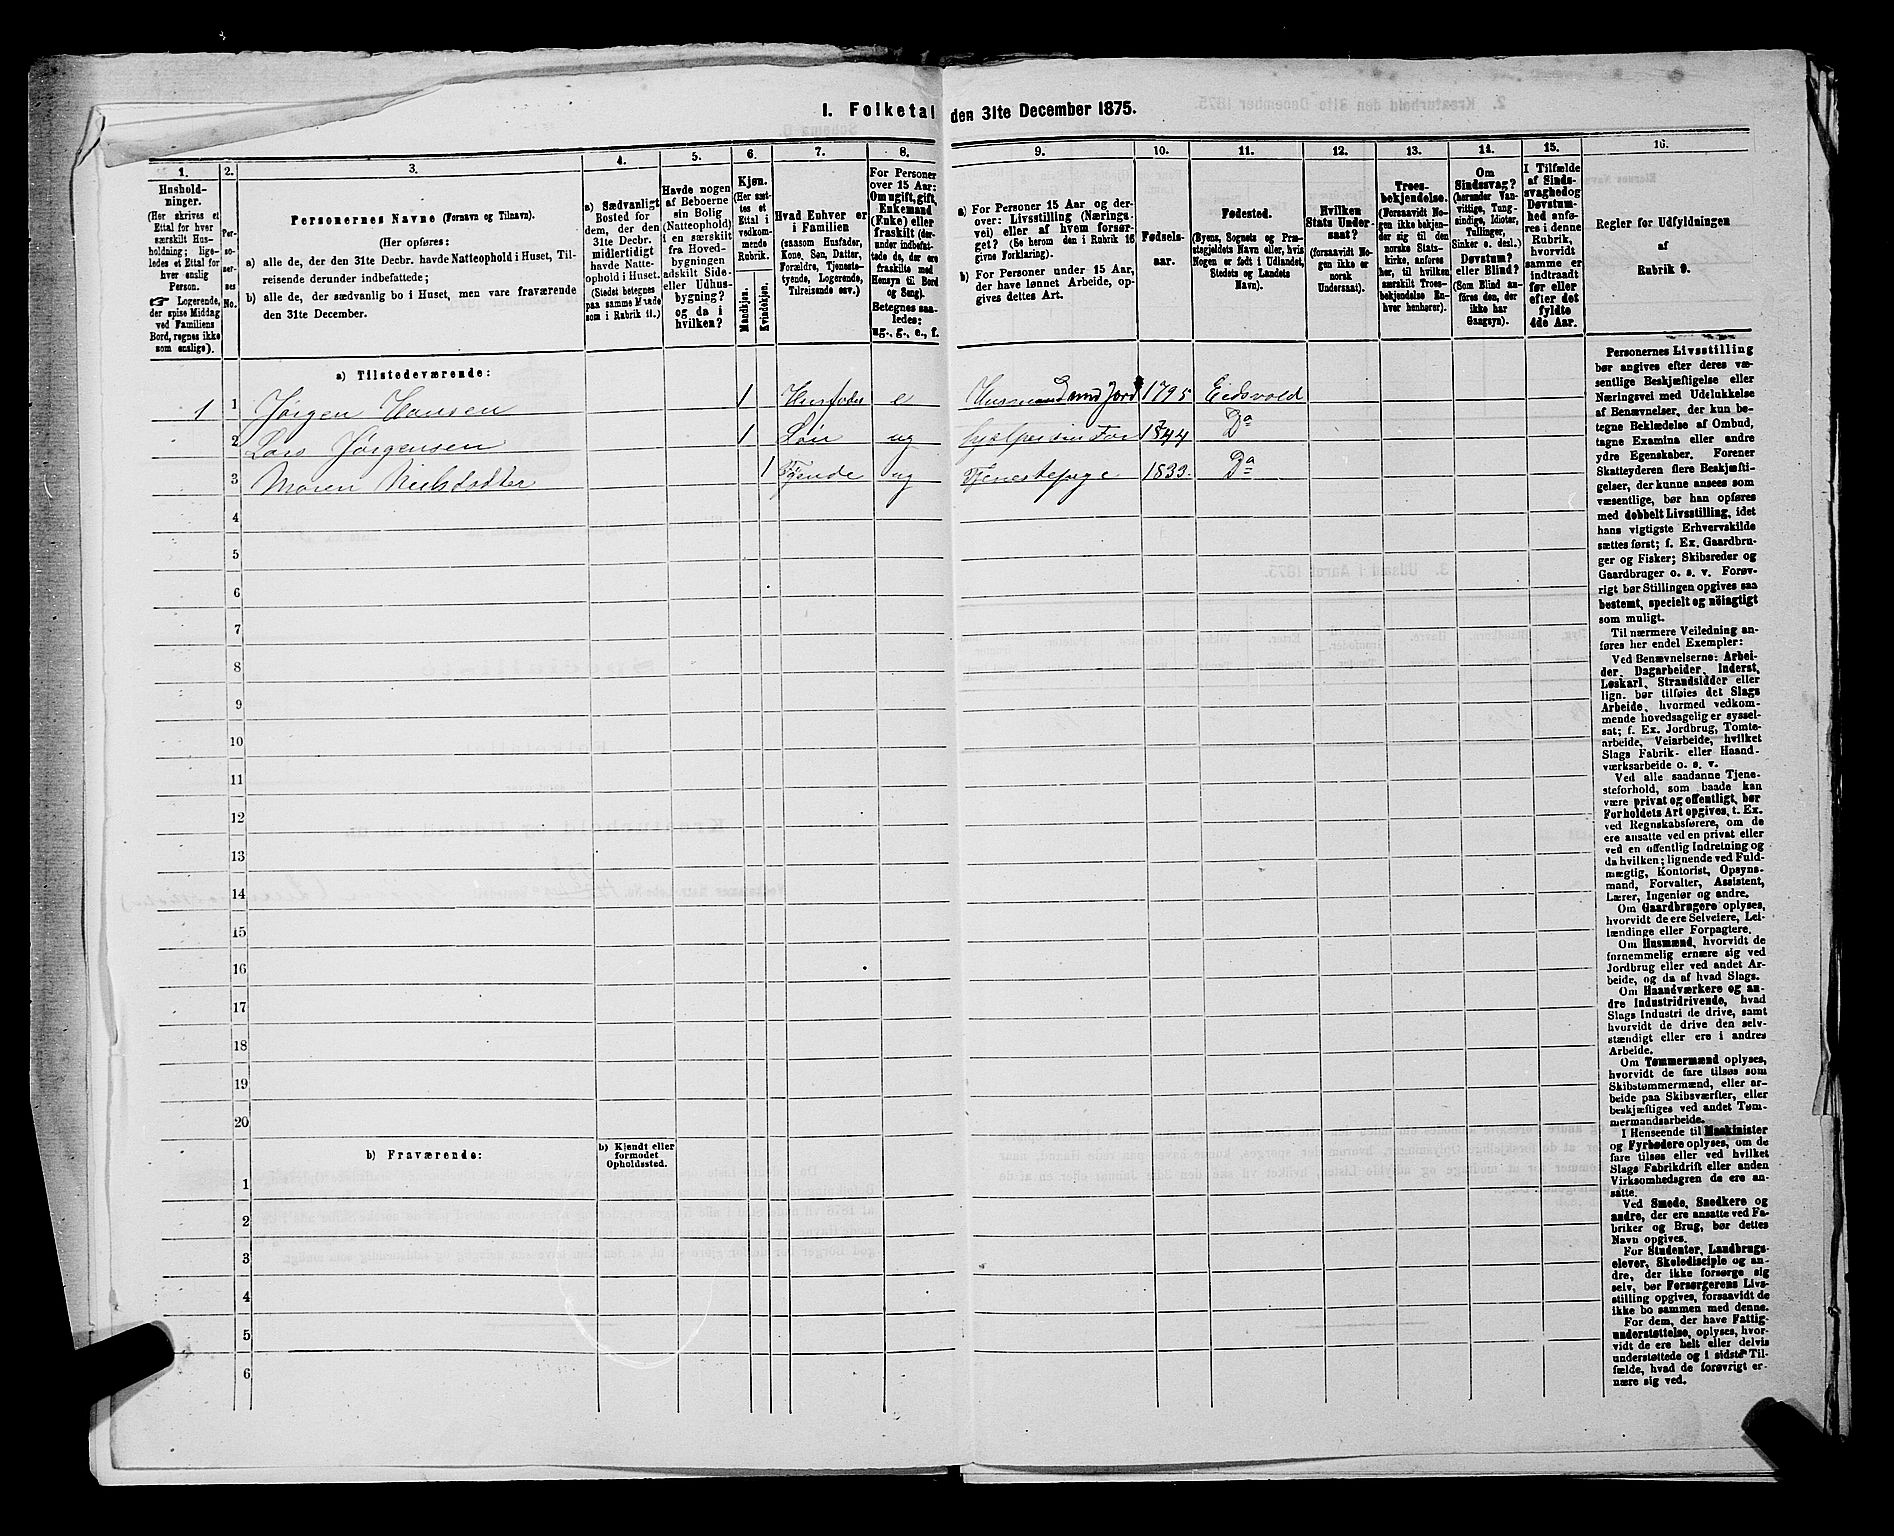 I. Folketal den 31te December 1875.
1. 2. 3. 4. 5. 6. 7. 8. 9. 10. 11. 12. 13. 14. 15. 16.
Husholdninger.
(Her skrives et
Ettal for hver
særskilt Husholdning;
ligeledes et Ettal for
hver enslig
Person.
☞ Logerende,
der spise Middag
ved Familiens
Bord, regnes ikke
som enslige).
Personernes No.
Personernes Navne (Fornavn og Tilnavn).
(Her opføres:
a) alle de, der den 31te Decbr. havde Natteophold i Huset, Tilreisende derunder indbefattede;
b) alle de, der sædvanlig bo i Huset, men vare fraværende
den 31te December.
a) Sædvanligt
Bosted for
dem, der den
31te Decbr.
midlertidigt
havde Natteophold
i Huset.
(Stedet betegnes
paa samme Maade
som i Rubrik 11.)
Havde nogen
af Beboerne
sin Bolig
(Natteophold)
i en særskilt
fra Hovedbygningen
adskilt Side-
eller Udhusbygning?
og da i
hvilken?
Kjøn.
(Her sættes et
Ettal i
vedkommende
Rubrik.
Mandkjøn.
Kvindekjøn.
Hvad Enhver er
i Familien
(saasom Husfader,
Kone, Søn, Datter,
Forældre, Tjenestetyende, Logerende,
Tilreisende osv.)
For Personer
over 15 Aar:
Om ugift, gift,
Enkemand
(Enke) eller
fraskilt (derunder indbefattede de, der ere
fraskilte med
Hensyn til Bord
og Seng).
Betegnes saaledes:
ug., g., e., f.
a) For Personer 15 Aar og derover: Livsstilling (Næringsvei) eller af hvem forsørget? (Se herom den i Rubrik 16
givne Forklaring).
b) For Personer under 15 Aar,
der have lønnet Arbeide, opgives dettes Art.
Fødselsaar.
Fødested.
(Byens, Sognets og Præstegjeldets Navn eller, hvis
Nogen er født i Udlandet,
Stedets og Landets
Navn).
Hvilken
Stats Undersaat?
(forsaavidt Nogen ikke er
norsk
Undersaat).
Troesbekjendelse.
(Forsaavidt Nogen ikke bekjender sig til den
norske Statskirke, anføres
her, til hvilken
særskilt Troesbekjendelse Enhver henhører).
Om
Sindssvag?
(herunder Vanvittige, Tungsindige, Idioter,
Tullinger,
Sinker o. desl.)
Døvstum?
eller Blind?
(Som Blind anføres den, der
ikke har
Gangsyn).
I Tilfælde
af Sindssvaghed og
Døvstumhed anføres i denne
Rubrik,
hvorvidt
samme er
indtraadt
før eller
efter det
fyldte
4de Aar.
Regler for Udfyldningen
af
Rubrik 9.
a) Tilstedeværende:
1 1 Jørgen Hansen 1 Husfader e Husmand med Jord 1795 Eidsvold
2 Lars Jørgensen 1 Søn ug hjælper sin Far 1844 Do
3 Maren Nielsdatter 1 Tyende ug Tjenestepige 1833. Do
4
5
6
7
8
9
10
11
12
13
14
15
16
17
18
19
20
b) Fraværende:
b) Kjendt eller
formodet
Opholdssted.
1
2
3
4
5
6
Personernes Livsstilling
bør angives efter deres væsentlige Beskjæftigelse eller
Næringsvei med Udelukkelse
af Benævnelser, der kun betegne Beklædelse af Ombud,
tagne Examina eller andre
ydre Egenskaber. Forener
Skatteyderen flere Beskjæftigelser, der kunne ansees som
væsentlige, bør han opføres
med dobbelt Livsstilling, idet
hans vigtigste Erhvervskilde
sættes først; f. Ex. Gaardbruger og Fisker; Skibsreder og
Gaardbruger o. s. v. Forøvrigt bør Stillingen opgives saa
bestemt, specielt og nøiagtigt
som muligt.
Til nærmere Veiledning anføres her endel Exempler:
Ved Benævnelserne: Arbeider, Dagarbeider, Inderst,
Løskarl, Strandsidder eller
lign. bør tilføies det Slags
Arbeide, hvormed vedkommende hovedsagelig er sysselsat; f. Ex. Jordbrug, Tomtearbeide, Veiarbeide, hvilket
Slags Fabrik- eller Haandværksarbeide o. s. v.
Ved alle saadanne Tjenesteforhold, som baade kan
være privat og offentligt, bør
Forholdets Art opgives, t. Ex.
ved Regnskabsførere, om de
ere ansatte ved en privat eller
ved en offentlig Indretning og
da hvilken; lignende ved Fuldmægtig, Kontorist, Opsynsmand, Forvalter, Assistent,
Lærer, Ingeniør og andre.
Om Gaardbrugere oplyses,
hvorvidt de ere Selveiere, Leilændinge eller Forpagtere.
Om Husmænd, hvorvidt de
fornemmelig ernære sig ved
Jordbrug eller ved andet Arbeide, og da af hvad Slags.
Om Haandværkere og andre Industridrivende, hvad
Slags Industri de drive, samt
hvorvidt de drive den selvstændigt eller ere i andres
Arbeide.
Om Tømmermænd oplyses,
hvorvidt de fare tilsøs som
Skibstømmermænd, eller arbeide paa Skibsværfter, eller
beskjæftiges ved andet Tømmermandsarbeide.
I Henseende til Maskinister
og Fyrbødere oplyses, om de
fare tilsøs eller ved hvilket
Slags Fabrikdrift eller anden
Virksomhedsgren de ere ansatte.
Ved Smede, Snedkere og
andre, der ere ansatte ved Fabriker og Brug, bør dettes
Navn opgives.
For Studenter, Landbrugselever, Skoledisciple og andre, der ikke forsørge sig
selv, bør Forsørgerens Livsstilling opgives, forsaavidt de
ikke bo sammen med denne.
For dem, der have Fattigunderstøttelse, oplyses, hvorvidt de ere helt eller delvis
understøttede og i sidste Tilfælde, hvad de forøvrigt ernære sig ved.